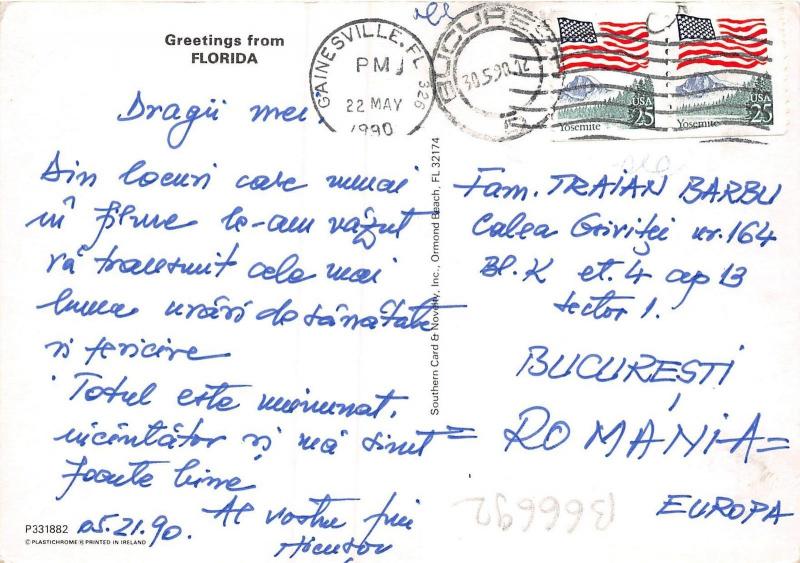 Greetings from
FLORIDA
GAINESVILLE, FL 326
PM
22 MAY
1990
BUCUREȘTI
30.5.90.12
USA 25
Yosemite
USA 25
Yosemite
Dragii mei,
Din locuri care numai
în filme le-am văzut
vă transmit cele mai
bune urări de sănătate
și fericire
Totul este minunat,
încântător și mă simt
foarte bine
05.21.90.
Al vostru fin
Southern Card & Novelty, Inc., Ormond Beach, FL 32174
Fam. TRAIAN BARBU
Calea Griviței nr. 164
Bl. K et. 4 ap 13
sector 1.
BUCUREȘTI
= ROMÂNIA =
EUROPA
B66692
P331882
© PLASTICHROME ® PRINTED IN IRELAND